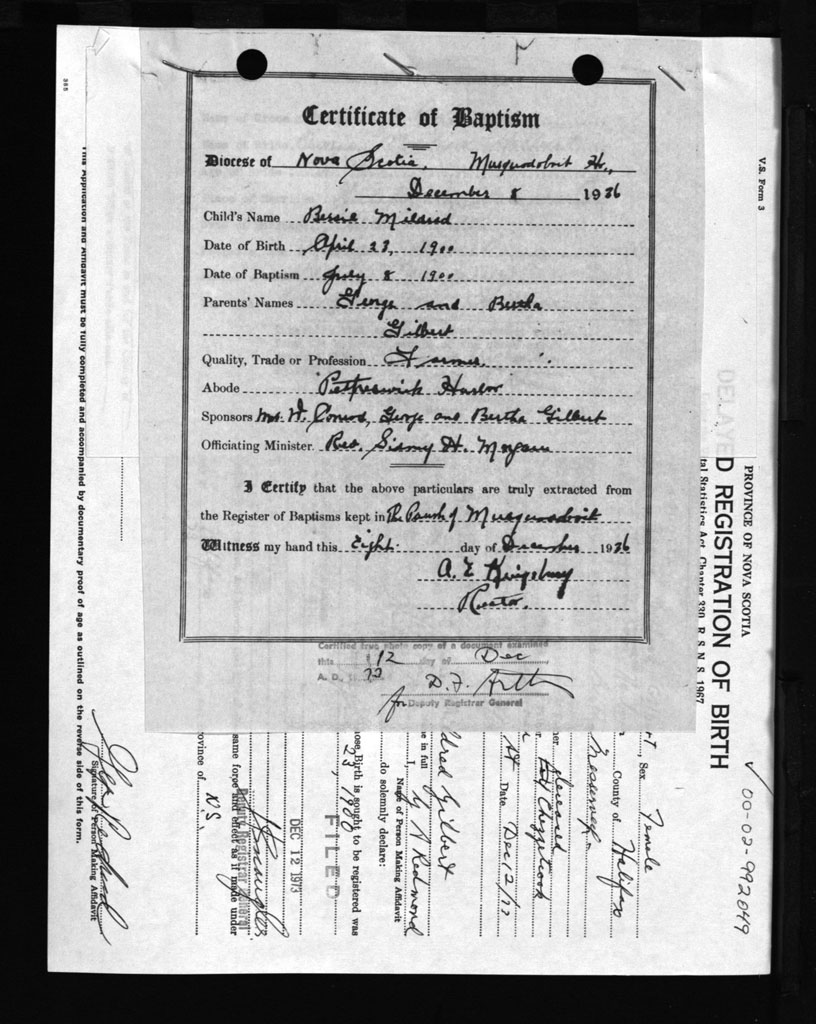 Certificate of Baptism
Diocese of Nova Scotia, Musquodoboit Hr.,
December 8 1936
Child's Name Bessie Mildred
Date of Birth April 23, 1900
Date of Baptism July 8 1900
Parents' Names George and Bertha
Gilbert
Quality, Trade or Profession Farmer
Abode Petpeswick Harbor
Sponsors Mrs. W. Conrod, George and Bertha Gilbert
Officiating Minister. Rev. H.
I Certify that the above particulars are truly extracted from
the Register of Baptisms kept in The Parish of Musquodoboit
Witness my hand this Eight day of December 1936
A. E. Kingsbury
Rector.
Certified true photo copy of a document examined
this 12 day of Dec
A. D., 
D. F.
for Deputy Registrar General
V.S. Form 3
00-02-992049
PROVINCE OF NOVA SCOTIA
DELAYED REGISTRATION OF BIRTH
tal Statistics Act, Chapter 330, R.S.N.S. 1967
Sex Female
County of Halifax
deceased
East Chezzetcook
Date Dec 12/73
dred Gilbert
e in full
I, G A Redmond
Name of Person Making Affidavit
do solemnly declare:
ose Birth is sought to be registered was
23, 1900
FILED
DEC 12 1973
Deputy Registrar General
same force and effect as if made under
rovince of N.S.
Signature of Person Making Affidavit
This Application and Affidavit must be fully completed and accompanied by documentary proof of age as outlined on the reverse side of this form.
385